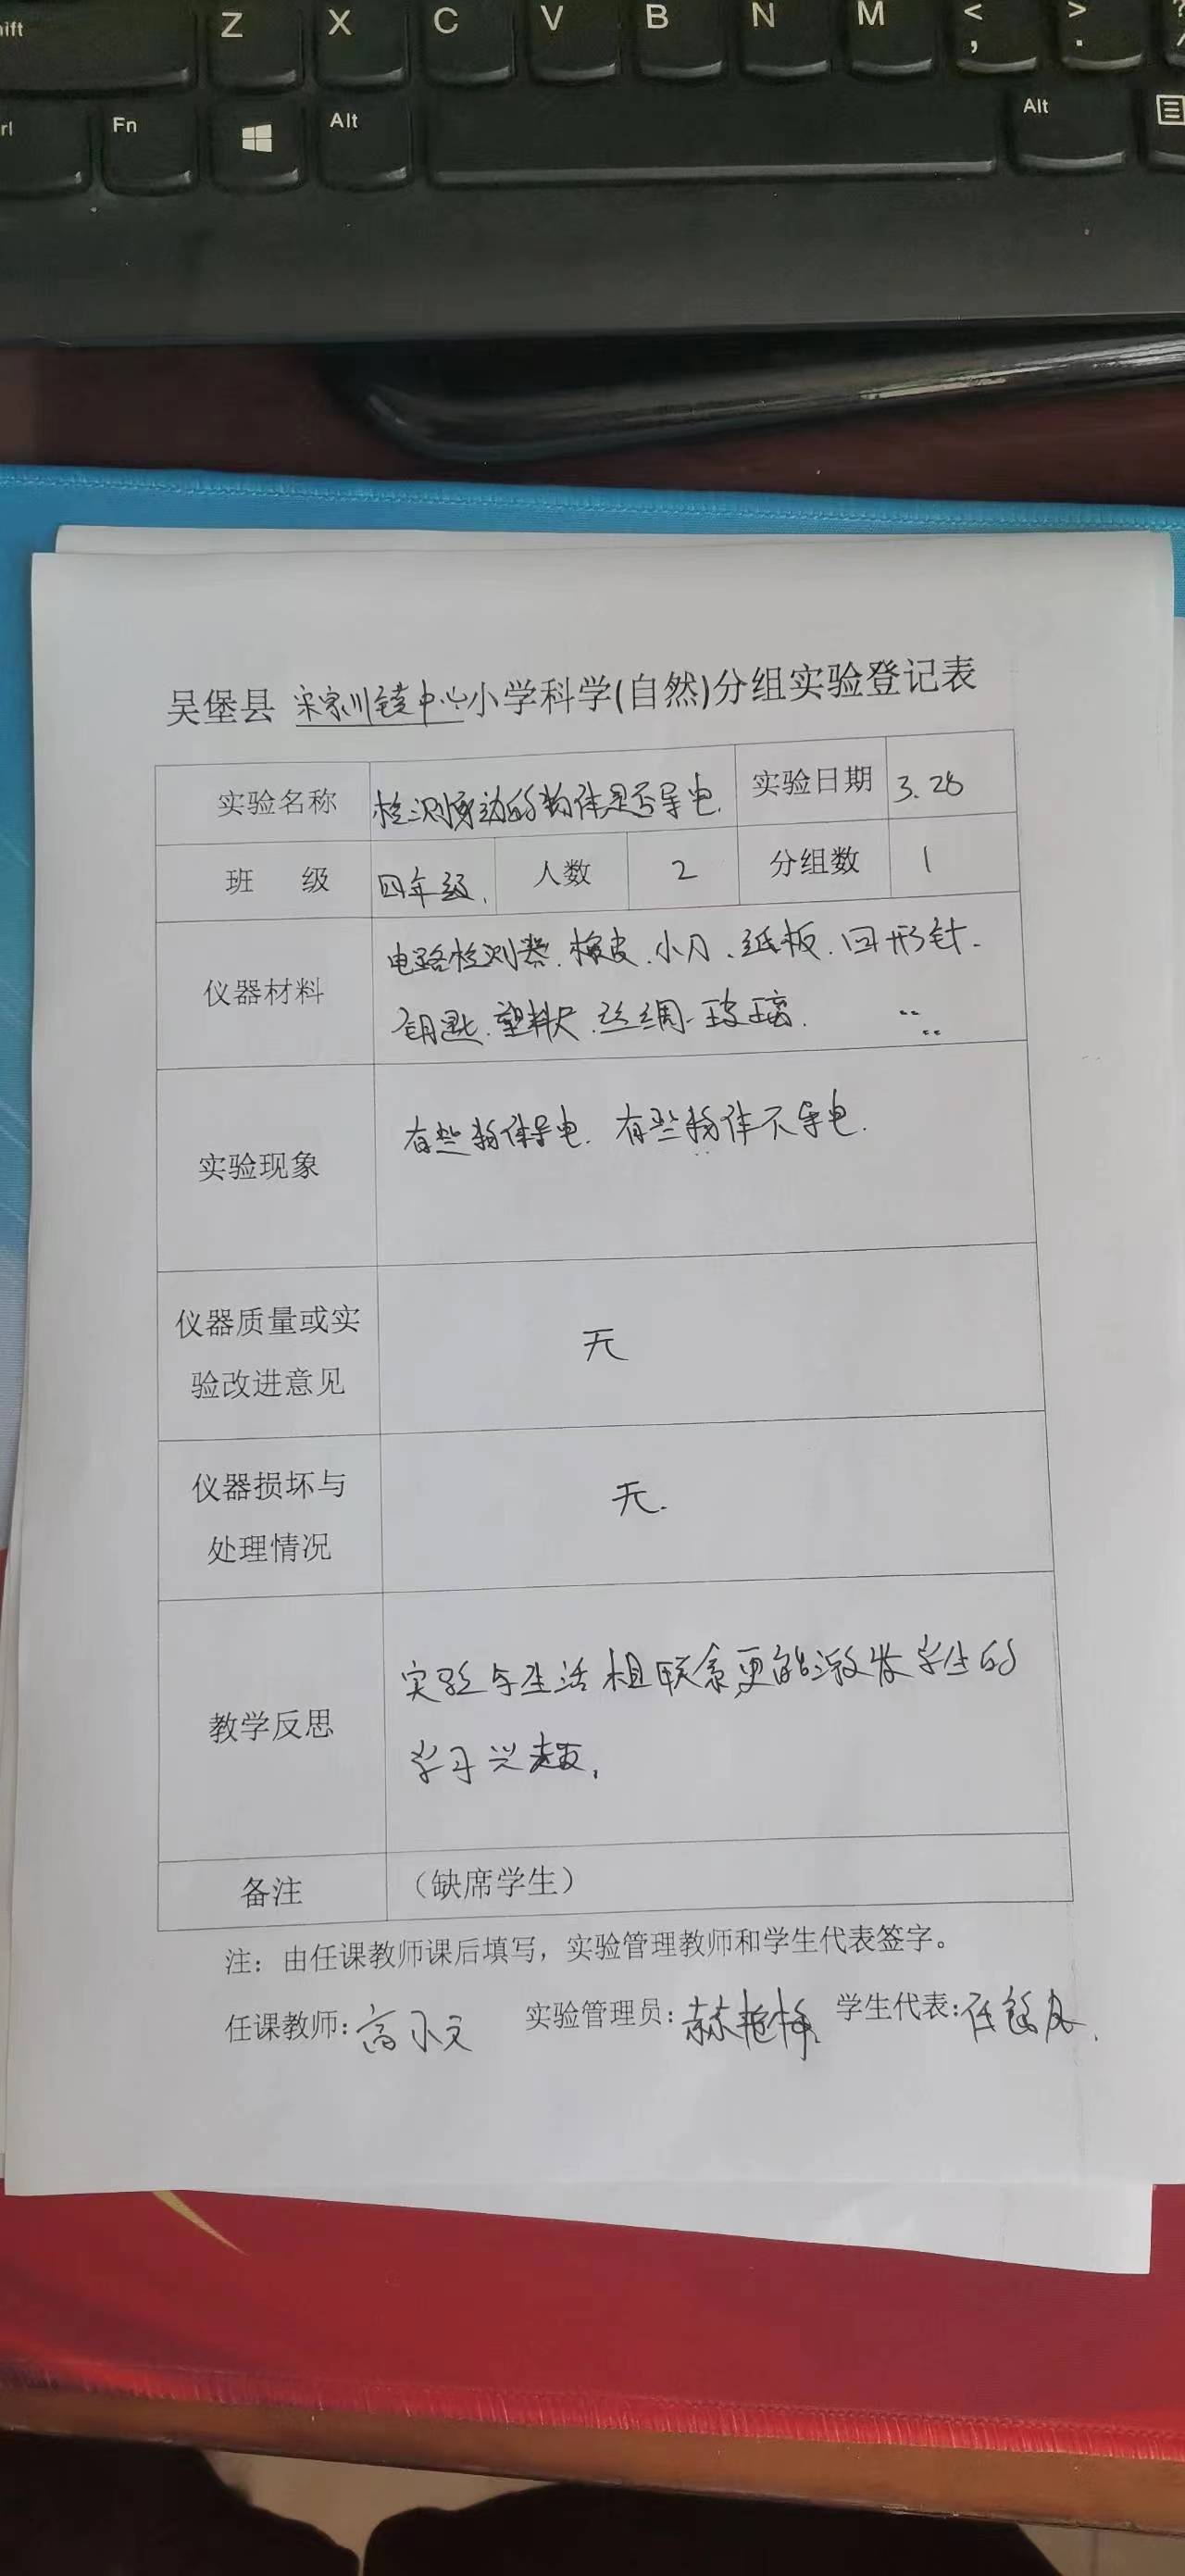 ift Z X C V B N M < , > . ?
rl Fn Alt Alt
吴堡县 宋家川镇中心小学科学(自然)分组实验登记表
实验名称 检测身边的物体是否导电. 实验日期 3.28
班 级 四年级. 人数 2 分组数 1
仪器材料 电路检测器.橡皮.小刀.纸板.回形针.
钥匙.塑料尺.丝绸.玻璃. ……
实验现象 有些物体导电. 有些物体不导电.
仪器质量或实
验改进意见 无
仪器损坏与
处理情况 无.
教学反思 实验与生活相联系更能激发学生的
学习兴趣.
备注 （缺席学生）
注：由任课教师课后填写，实验管理教师和学生代表签字。
任课教师: 高小文 实验管理员: 学生代表: